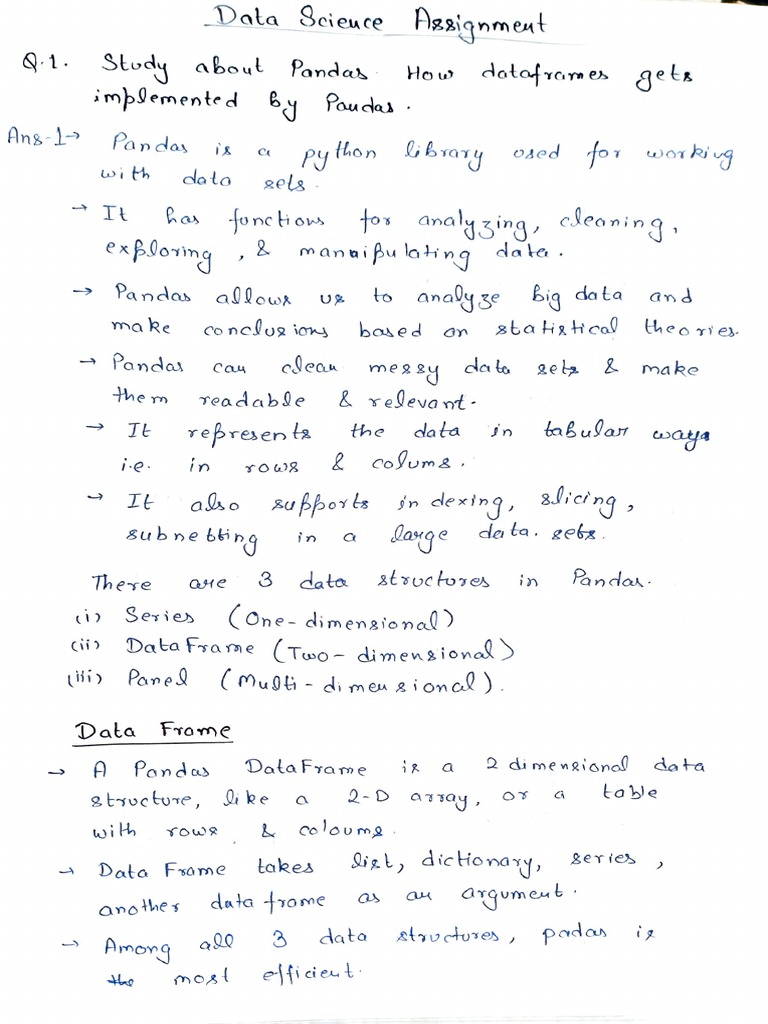 Data Science Assignment
Q.1. Study about Pandas. How dataframes gets
implemented by Pandas.
Ans-1→ Pandas is a python library used for working
with data sets.
→ It has functions for analyzing, cleaning,
exploring, & mannipulating data.
→ Pandas allows us to analyze big data and
make conclusions based on statistical theories.
→ Pandas can clean messy data sets & make
them readable & relevant.
→ It represents the data in tabular ways
i.e. in rows & colums.
→ It also supports indexing, slicing,
subnetting in a large data. sets.
There are 3 data structures in Pandas.
(i) Series (One-dimensional)
(ii) DataFrame (Two-dimensional)
(iii) Panel (Multi-dimensional).
Data Frame
→ A Pandas DataFrame is a 2 dimensional data
structure, like a 2-D array, or a table
with rows & coloums.
→ Data Frame takes list, dictionary, series,
another data frame as an argument.
→ Among all 3 data structures, padas is
the most efficient.